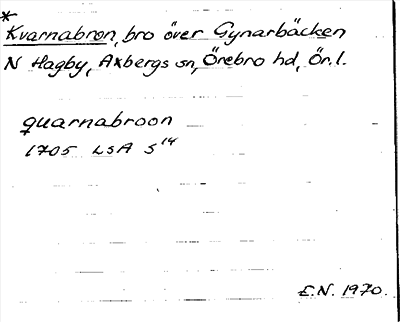 *
Kvarnabron, bro över Gynarbäcken
N Hagby, Axbergs sn, Örebro hd, Ör.l.
quarnabroon
1705 LSA S 14
E.N. 1970.